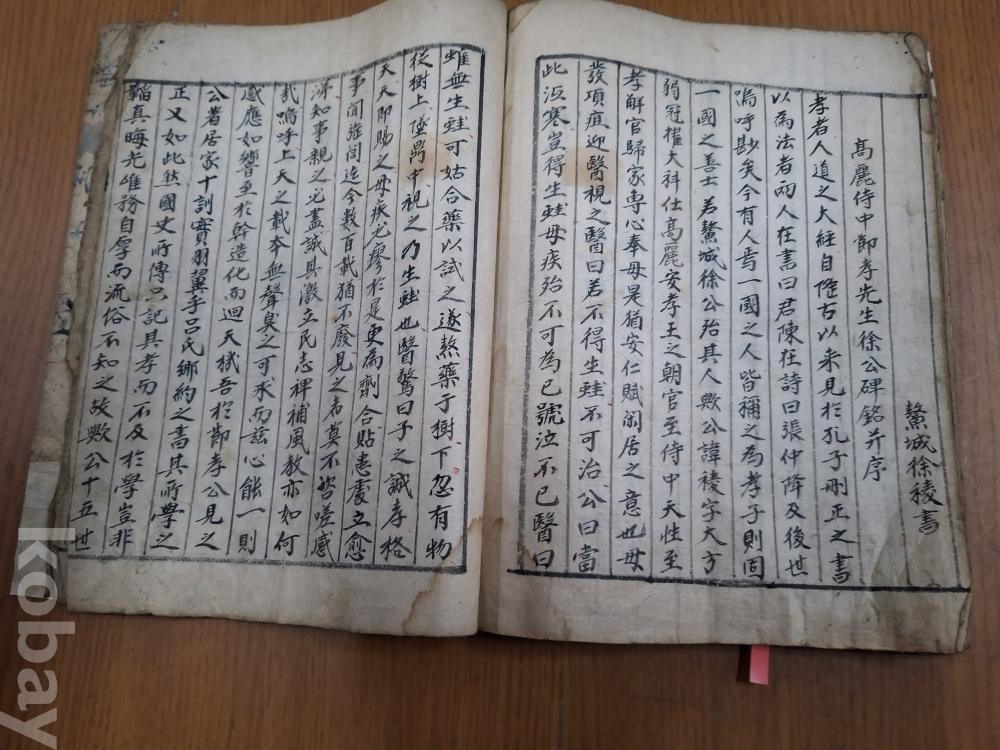 鰲城徐稜書
高麗侍中節孝先生徐公碑銘并序
孝者人道之大經自徃古以来見於孔子刪正之書
以為法者兩人在書曰君陳在詩曰張仲降及後世
嗚呼尠矣今有人焉一國之人皆稱之為孝子則固
一國之善士若鰲城徐公殆其人歟公諱稜字大方
弱冠擢大科仕高麗安孝王之朝官至侍中天性至
孝解官歸家專心奉母是猶安仁賦閑居之意也母
發項疽迎醫視之醫曰若不得生蛙不可治公曰當
此沍寒豈得生蛙母疾殆不可為已號泣不已醫曰
雖無生蛙可姑合藥以試之遂熬藥于樹下忽有物
從樹上墜鼎中視之乃生蛙也醫驚曰子之誠孝格
天天即賜之母疾必瘳於是更為劑合貼患處立愈
事聞旌閭迄今數百載猶不廢見之者莫不咨嗟感
涕知事親之必盡誠其激立民志裨補風教亦如何
哉嗚呼上天之載本無聲臭之可求而玆心能一則
感應如響至於幹造化而迴天弑吾於節孝公見之
公著居家十訓實羽翼乎呂氏鄉約之書其所學之
正又如此然國史所傳只記其孝而不及於學豈非
韜真晦光雖務自厚而流俗不知之故歟公十五世
kobay